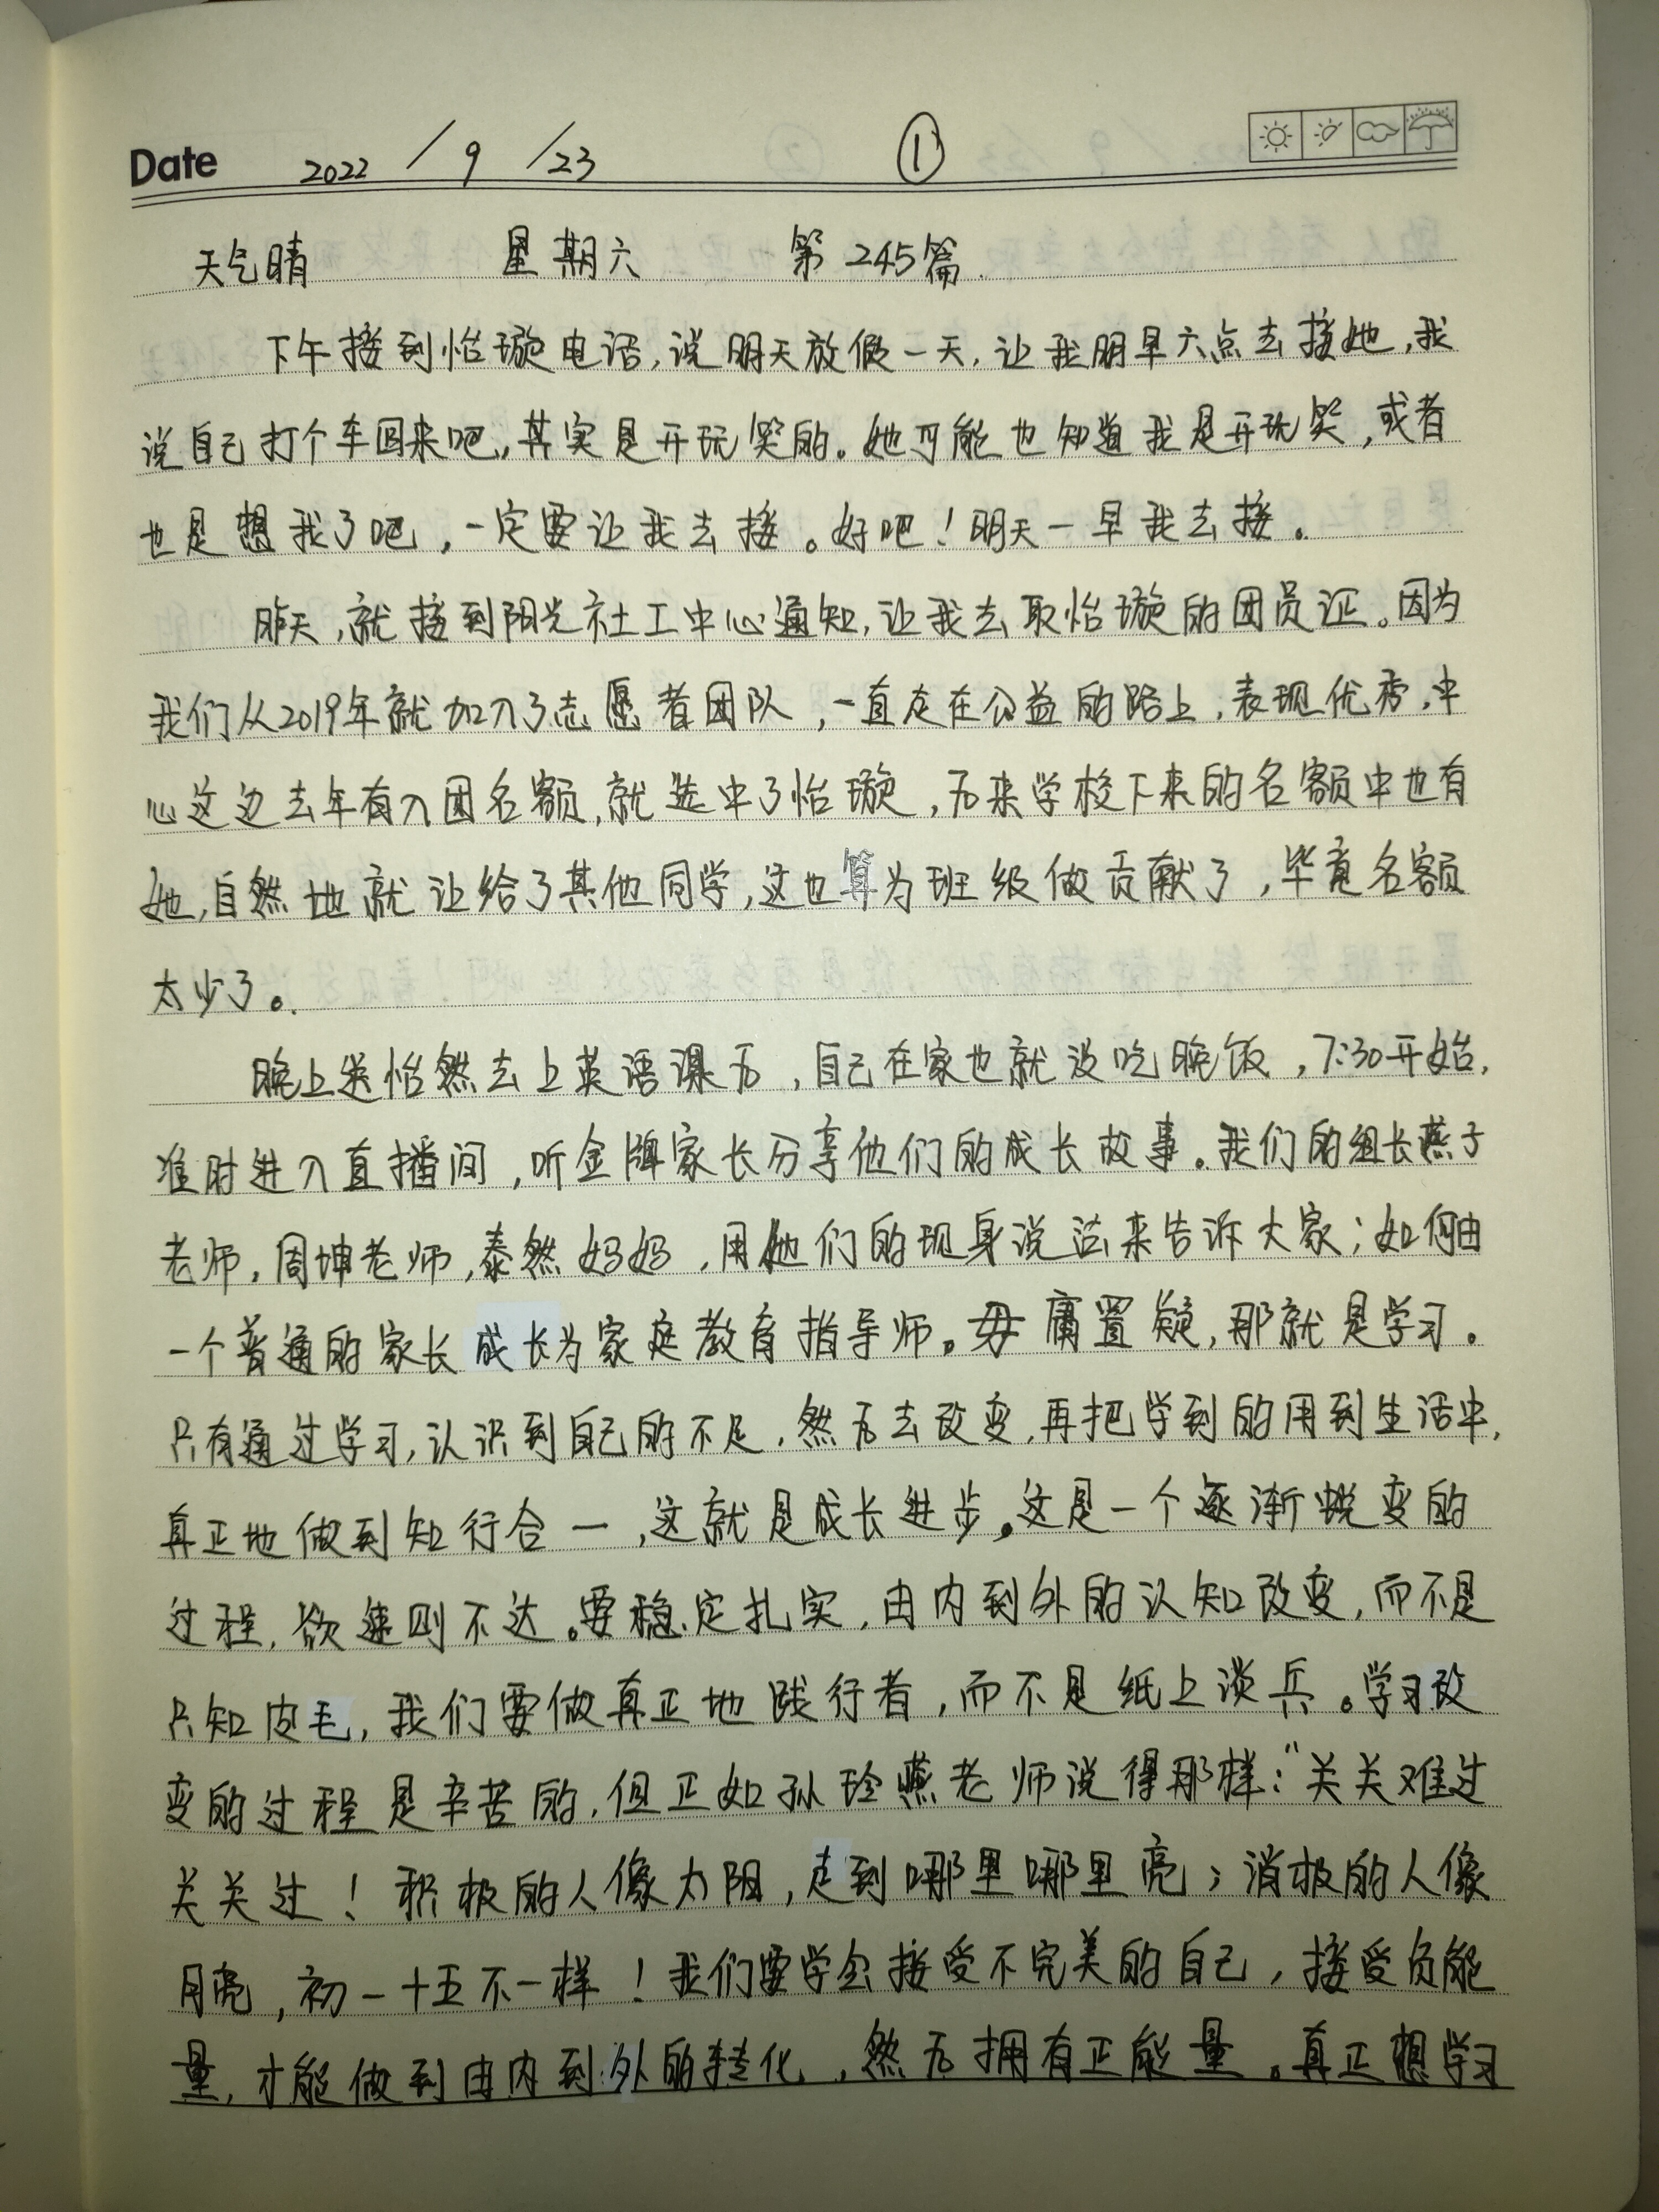 Date 2022 / 9 / 23 ①
天气晴 星期六 第245篇.
下午接到怡璇电话,说明天放假一天,让我明早六点去接她,我
说自己打个车回来吧,其实是开玩笑的。她可能也知道我是开玩笑,或者
也是想我了吧,一定要让我去接。好吧!明天一早我去接。
昨天,就接到阳光社工中心通知,让我去取怡璇的团员证。因为
我们从2019年就加入了志愿者团队,一直走在公益的路上,表现优秀,中
心这边去年有入团名额,就选中了怡璇,后来学校下来的名额中也有
她,自然地就让给了其他同学,这也算为班级做贡献了,毕竟名额
太少了。
晚上送怡然去上英语课后,自己在家也就没吃晚饭,7:30开始,
准时进入直播间,听金牌家长分享他们的成长故事。我们的组长燕子
老师,周坤老师,泰然妈妈,用他们的现身说法来告诉大家;如何由
一个普通的家长成长为家庭教育指导师。毋庸置疑,那就是学习。
只有通过学习,认识到自己的不足,然后去改变,再把学到的用到生活中,
真正地做到知行合一,这就是成长进步。这是一个逐渐蜕变的
过程,欲速则不达。要稳定扎实,由内到外的认知改变,而不是
只知皮毛,我们要做真正地践行者,而不是纸上谈兵。学习改
变的过程是辛苦的,但正如孙玲燕老师说得那样:“关关难过
关关过!积极的人像太阳,走到哪里哪里亮;消极的人像
月亮,初一十五不一样!我们要学会接受不完美的自己,接受负能
量,才能做到由内到外的转化,然后拥有正能量。真正想学习